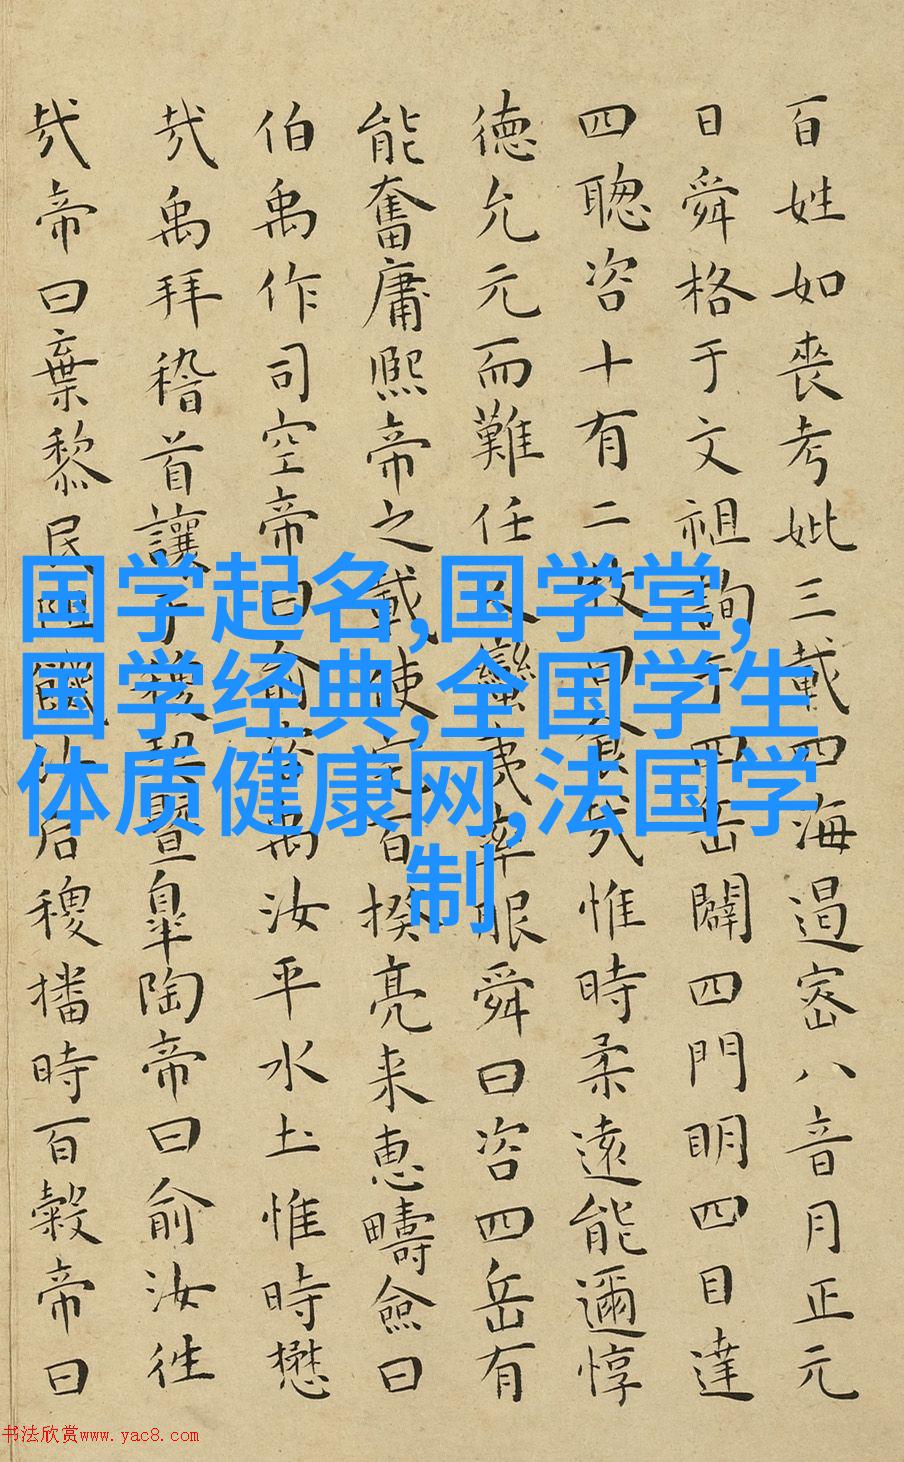 百姓如喪考妣三載四海遏密八音月正元
日舜格于文祖詢于四岳闢四門明四目達
四聦咨十有二牧曰食哉惟時柔遠能邇惇
徳允元而難任人蠻夷率服舜曰咨四岳有
能奮庸熙帝之載使宅百揆亮来恵疇僉曰
伯禹作司空帝曰俞咨禹汝平水土惟時懋
哉禹拜稽首讓于稷契暨皐陶帝曰俞汝徃
哉帝曰棄黎民阻飢汝后稷播時百穀帝曰
国学起名,国学堂,
国学经典,全国学生
体质健康网,法国学
制
书法欣赏www.yac8.com